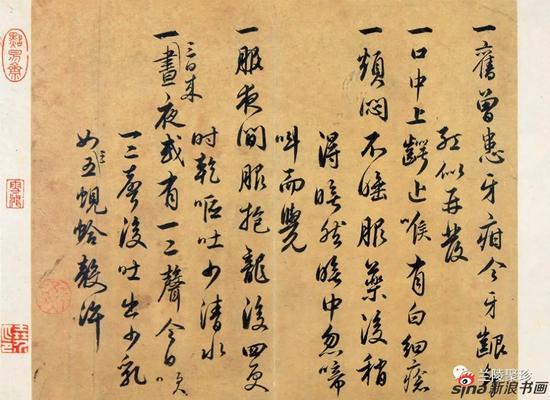 一舊曾患牙疳今牙齦
似再發
一口中上齶上喉有白細瘡
一煩悶不睡服藥後稍
得睡然睡中忽啼
叫而覺
一服夜間服抱龍後四更
時乾嘔吐少清水
三日來
一晝夜或有一二聲今日
一二聲後吐出少乳
如五蜆蛤殼許
兰陵聚珍
sina新浪书画